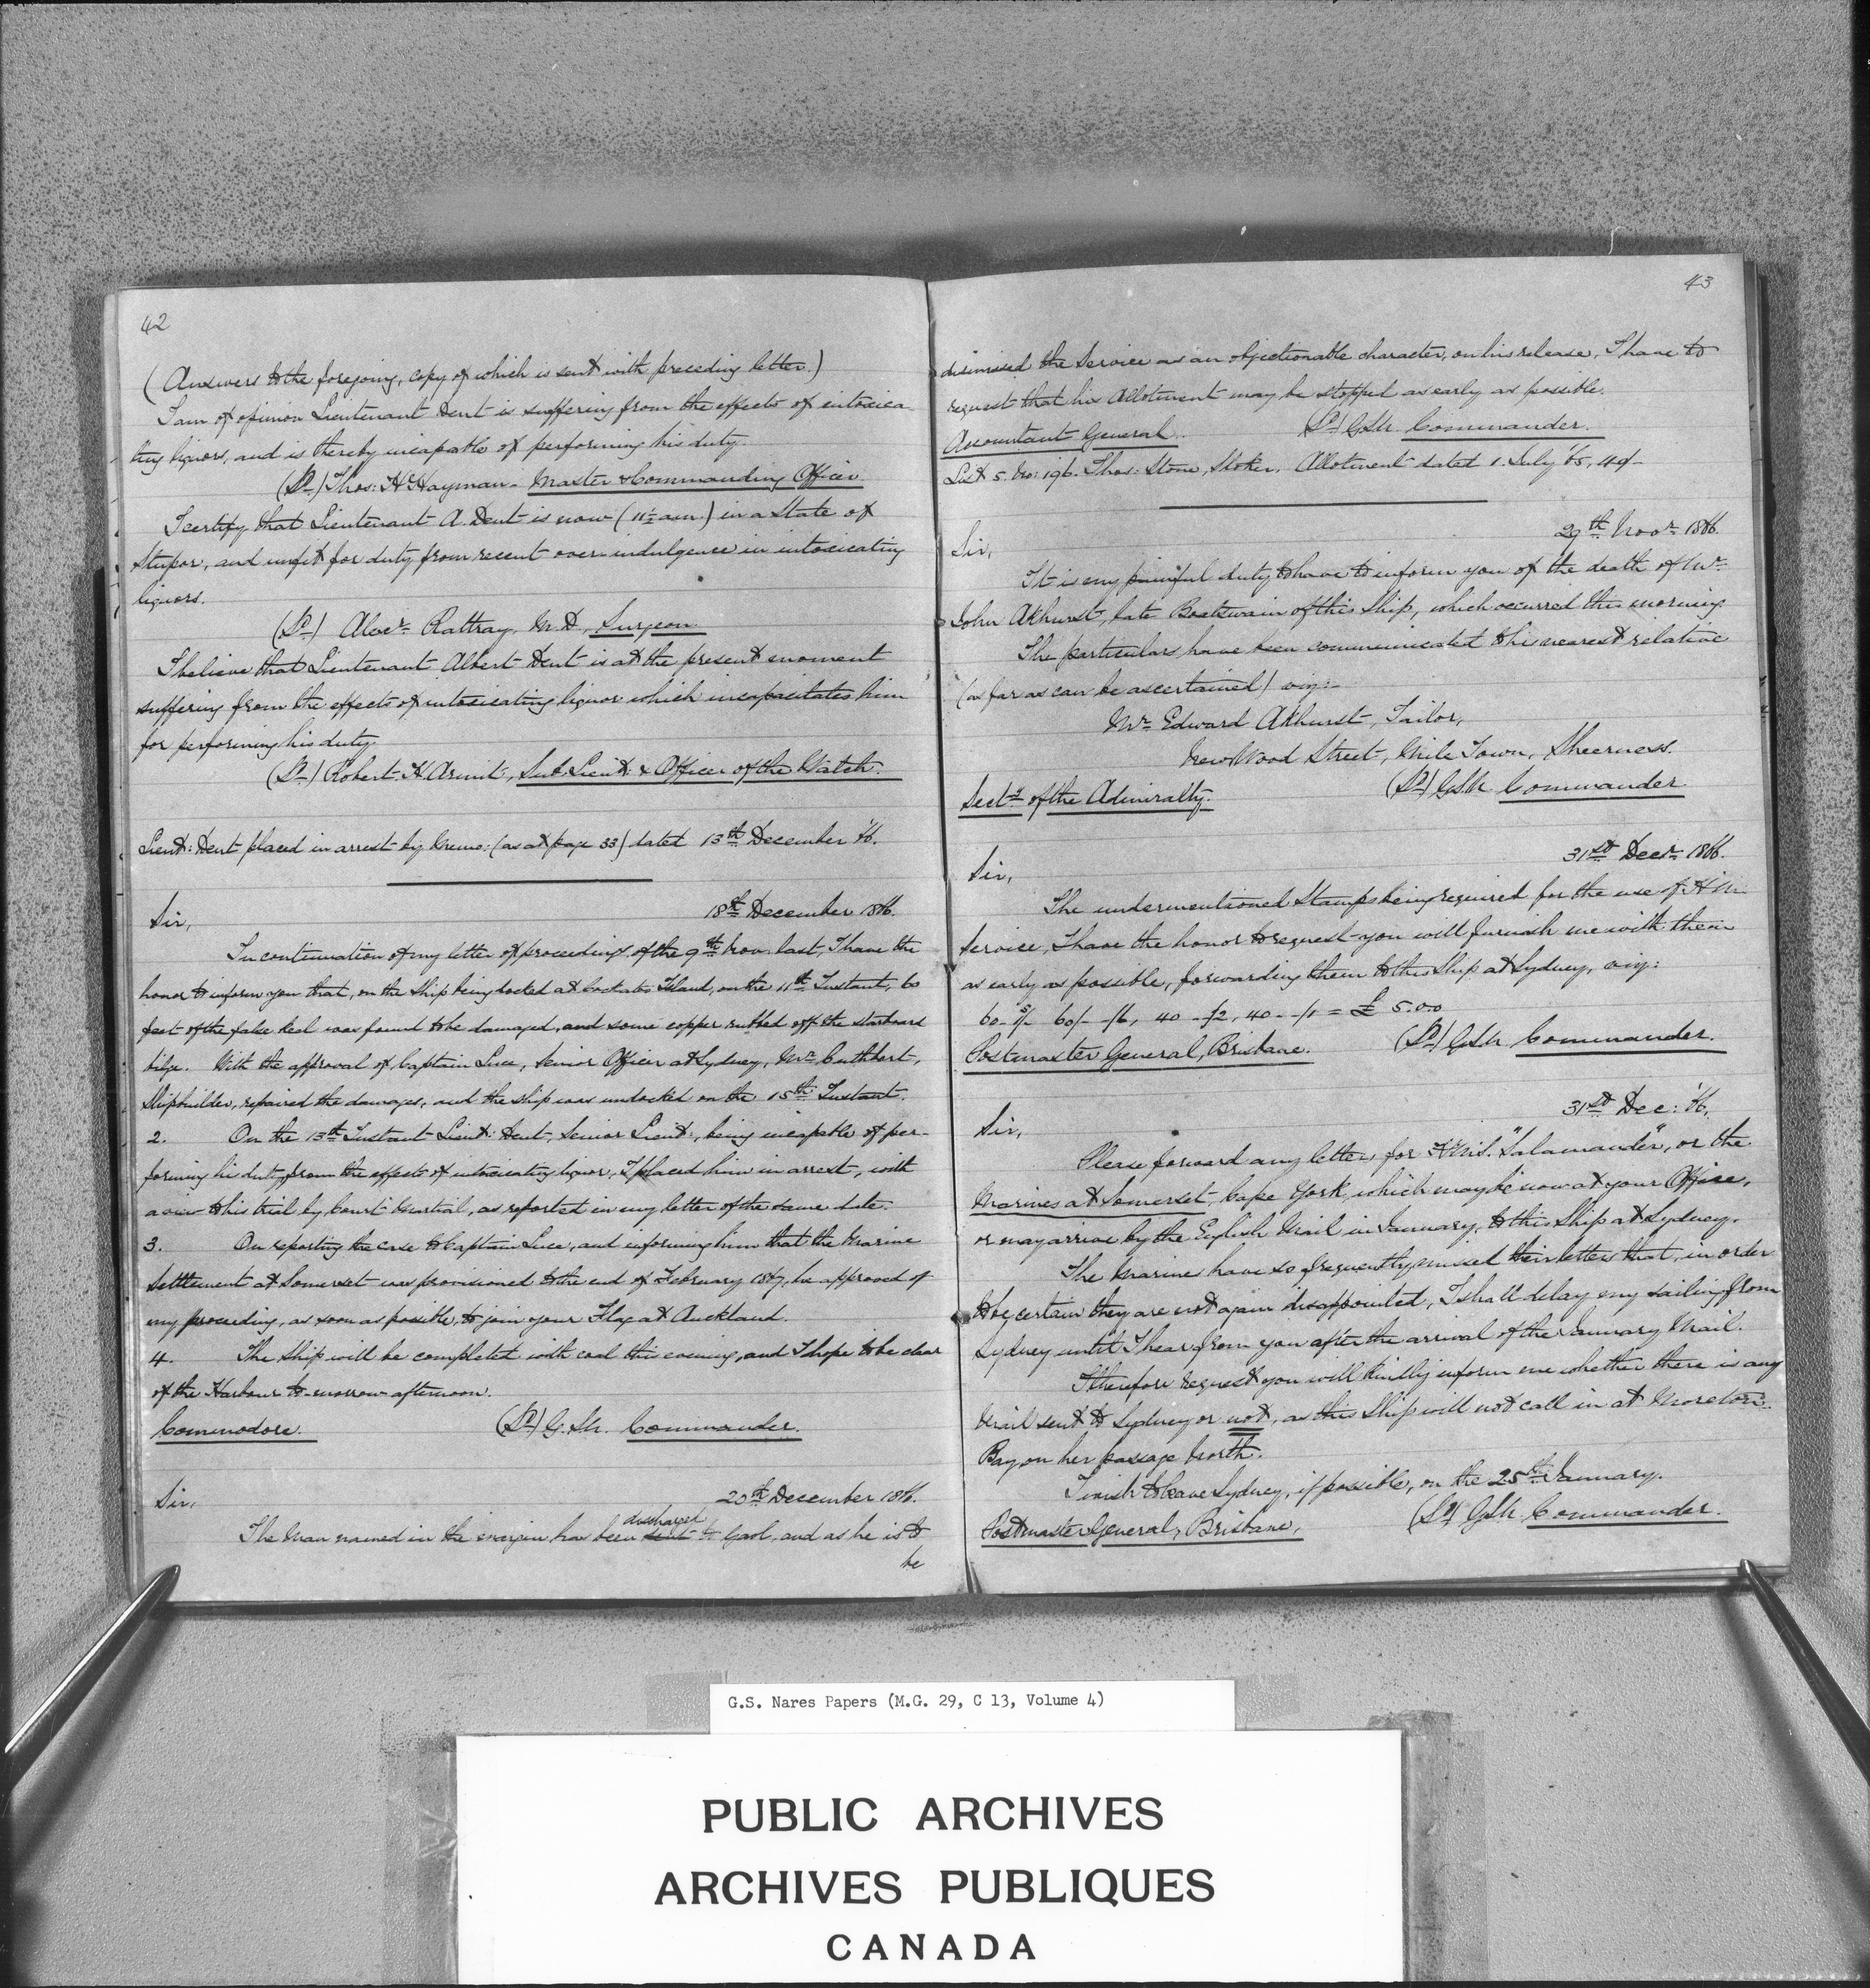 42
(Answers to the foregoing, copy of which is sent with preceding letter.)
I am of opinion Lieutenant Dent is suffering from the effects of intoxica
ting liquors, and is thereby incapable of performing his duty.
(Sd) Thos: H. Hayman - Master & Commanding Officer
I certify that Lieutenant A. Dent is now (11½ am) in a State of
Stupor, and unfit for duty from recent over-indulgence in intoxicating
liquors.
(Sd) Alexr. Rattray, M.D., Surgeon
I believe that Lieutenant Albert Dent is at the present moment
suffering from the effects of intoxicating liquor which incapacitates him
for performing his duty.
(Sd) Robert H. Armit, Sub. Lieut: & Officer of the Watch.
Lieut: Dent placed in arrest by Memo: (as at page 33) dated 13th December '66.
18th December 1866.
Sir,
In continuation of my letter of proceedings of the 9th Nov. last, I have the
honor to inform you that, on the Ship being docked at Cockatoo Island, on the 11th Instant, 60
feet of the false keel was found to be damaged, and some copper rubbed off the starboard
bilge. With the approval of Captain Luce, Senior Officer at Sydney, Mr. Cuthbert,
Shipbuilder, repaired the damages, and the ship was undocked on the 15th Instant.
2. On the 13th Instant Lieut: Dent, Senior Lieut:, being incapable of per-
forming his duty from the effects of intoxicating liquor, I placed him in arrest, with
a view to his trial by Court Martial, as reported in my letter of the same date.
3. On reporting the case to Captain Luce, and informing him that the Marine
Settlement at Somerset was provisioned to the end of February 1867, he approved of
my proceeding, as soon as possible, to join your Flag at Auckland.
4. The Ship will be completed with coal this evening, and I hope to be clear
of the Harbour to-morrow afternoon.
Commodore. (Sd) G.S.N. Commander.
20th December 1866.
Sir,
The Man named in the margin has been sent discharged to Gaol, and as he is to
be
43
dismissed the Service as an objectionable character, on his release, I have to
request that his Allotment may be stopped as early as possible.
Accountant General. (Sd) G.S.N. Commander.
List 5. No: 196. Thos: Stone, Stoker. Allotment dated 1. July '65, 40/-
29th Novr. 1866.
Sir,
It is my painful duty to have to inform you of the death of Mr.
John Akhurst, late Boatswain of this Ship, which occurred this morning.
The particulars have been communicated to his nearest relative
(as far as can be ascertained) viz:-
Mr. Edward Akhurst, Tailor,
New Wood Street, Mile Town, Sheerness.
(Sd) G.S.N. Commander
Secty. of the Admiralty.
31st Decr. 1866.
Sir,
The undermentioned Stamps being required for the use of H.M.
Service, I have the honor to request you will furnish me with them
as early as possible, forwarding them to this Ship at Sydney, viz:
40 - /2, 40 - /1 = £ 5.0.0
Postmaster General, Brisbane. (Sd) G.S.N. Commander.
31st Dec: '66.
Sir,
Please forward any letters for H.M.S. "Salamander", or the
Marines at Somerset, Cape York, which may be now at your Office,
or may arrive by the English Mail in January, to this Ship at Sydney.
The Marines have so frequently missed their letters that, in order
to be certain they are not again disappointed, I shall delay my sailing from
Sydney until I hear from you after the arrival of the January Mail.
I therefore request you will kindly inform me whether there is any
Mail sent to Sydney or not, as this Ship will not call in at Moreton
Bay on her passage North.
I wish to leave Sydney, if possible, on the 25th January.
(Sd) G.S.N. Commander.
Postmaster General, Brisbane.
G.S. Nares Papers (M.G. 29, C 13, Volume 4)
PUBLIC ARCHIVES
ARCHIVES PUBLIQUES
CANADA